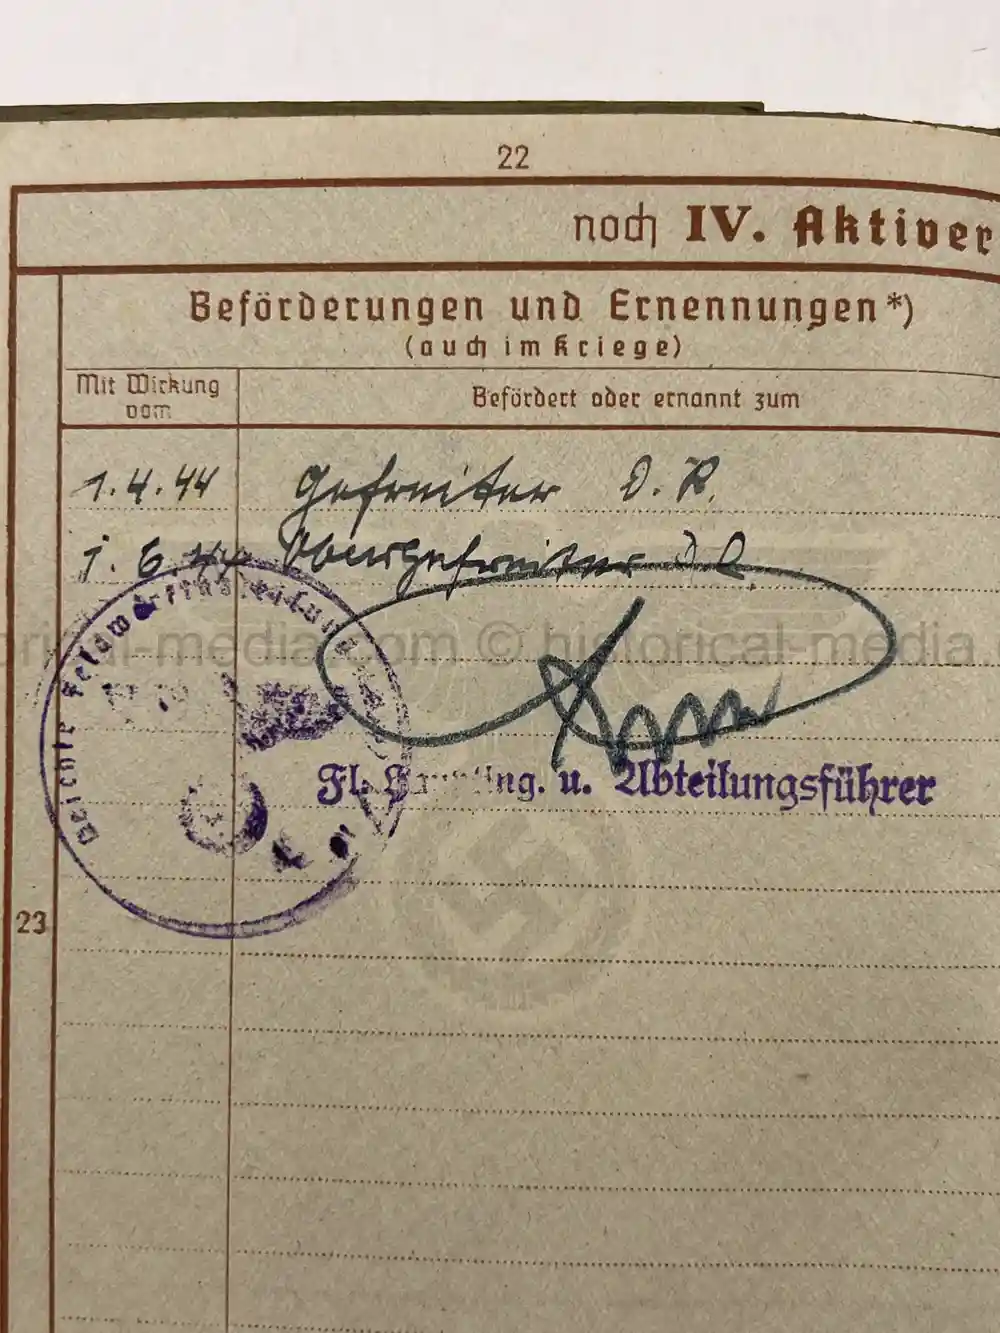 22
noch IV. Aktiver
Beförderungen und Ernennungen*)
(auch im Kriege)
Mit Wirkung
vom
Befördert oder ernannt zum
1.4.44 Gefreiter D. R.
1.6.44 Obergefreiter d.R.
historical-media.com © historical-media.
Leichte Feldwerftabteilung
Fl. Haupting. u. Abteilungsführer
23